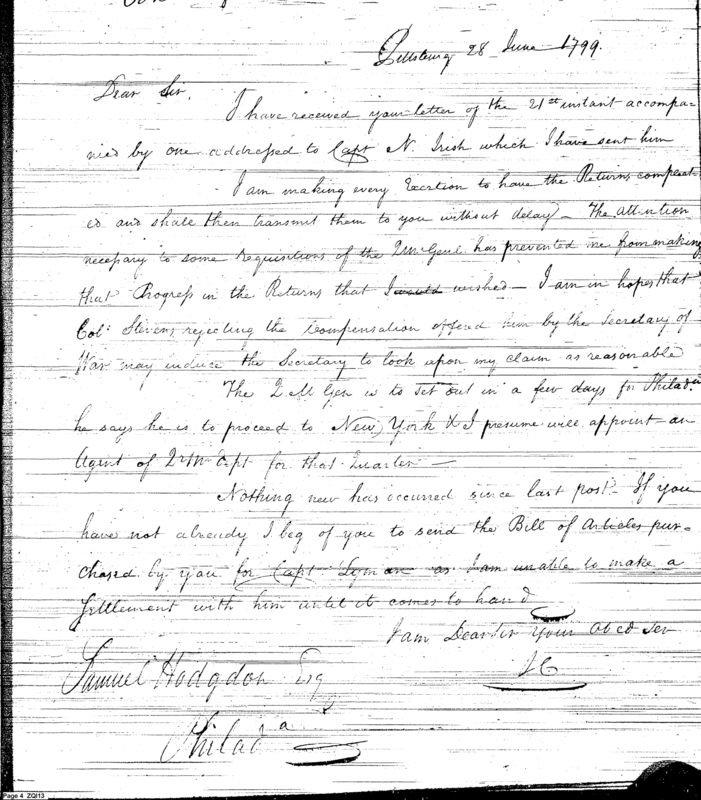 Pittsburg 28 June 1799.
Dear Sir.
I have received your letter of the 21st instant accompa=
nied by one addressed to Capt N. Irish which I have sent him
I am making every Exertion to have the Returns compleat
ed and shall then transmit them to you without delay — The attention
necessary to some requisitions of the 2 Mr Genl. has prevented me from making
that Progress in the Returns that I would wished — I am in hopes that
Colo. Stevens rejecting the Compensation offered him by the Secretary of
War may induce the Secretary to look upon my claim as reasonable
The 2 M Gen is to set out in a few days for Philada.
he says he is to proceed to New York & I presume will appoint an
Agent of 2r Mr Dept for that Quarter —
Nothing new has occurred since last post — If you
have not already I beg of you to send the Bill of Articles pur=
chased by you for Capt Lyman as I am unable to make a
Settlement with him until it comes to hand
I am Dear Sir Your Obed Ser
Samuel Hodgdon Esq
Philada
Page 4 ZQI13